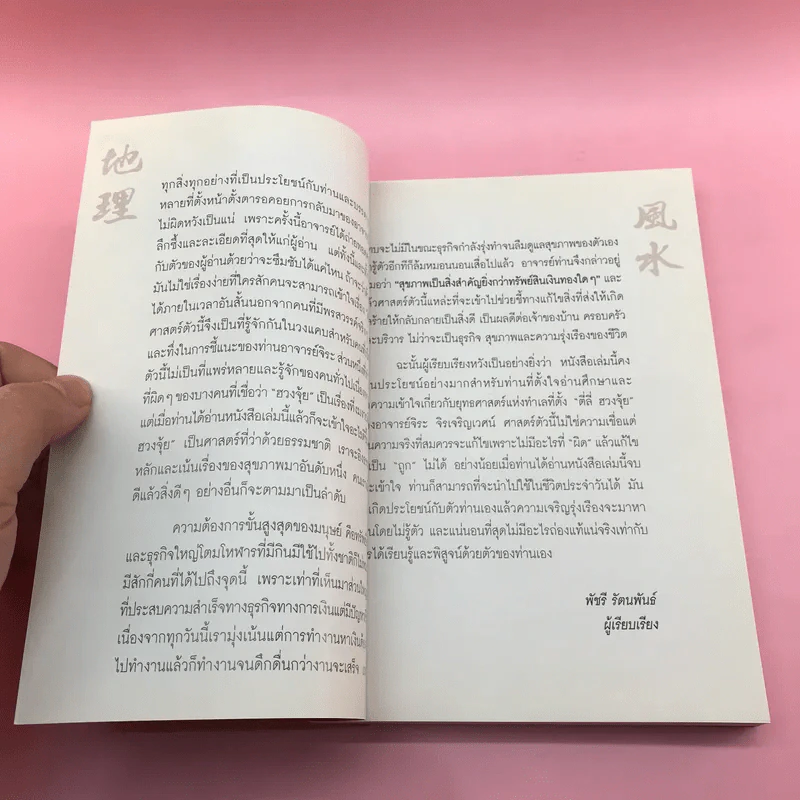 地理
ทุกสิ่งทุกอย่างที่เป็นประโยชน์กับท่านและบรรดา
หลายที่ตั้งหน้าตั้งตารอคอยการกลับมาของอาจารย์
ไม่ผิดหวังเป็นแน่ เพราะครั้งนี้อาจารย์ได้ถ่ายทอด
ลึกซึ้งและละเอียดที่สุดให้แก่ผู้อ่าน แต่ทั้งนี้
กับตัวของผู้อ่านด้วยว่าจะซึมซับได้แค่ไหน ถ้าจะ
มันไม่ใช่เรื่องง่ายที่ใครสักคนจะสามารถเข้าใจเรื่อง
ได้ภายในเวลาอันสั้นนอกจากคนที่มีพรสวรรค์จริง
ศาสตร์ตัวนี้จึงเป็นที่รู้จักกันในวงแคบสำหรับคน
และทึ่งในการชี้แนะของท่านอาจารย์จิระ ส่วนหนึ่ง
ตัวนี้ไม่เป็นที่แพร่หลายและรู้จักของคนทั่วไป
ที่ผิดๆ ของบางคนที่เชื่อว่า "ฮวงจุ้ย" เป็นเรื่องที่
แต่เมื่อท่านได้อ่านหนังสือเล่มนี้แล้วก็จะเข้าใจ
ฮวงจุ้ย" เป็นศาสตร์ที่ว่าด้วยธรรมชาติ เราจะ
หลักและเน้นเรื่องของสุขภาพมาอันดับหนึ่ง
ดีแล้วสิ่งดีๆ อย่างอื่นก็จะตามมาเป็นลำดับ
ความต้องการขั้นสูงสุดของมนุษย์ คือ
และธุรกิจใหญ่โตมโหฬารที่มีกินมีใช้ไปทั้งชาติก็ไม่
มีสักกี่คนที่ได้ไปถึงจุดนี้ เพราะเท่าที่เห็นมา
ที่ประสบความสำเร็จทางธุรกิจทางการเงินแต่มีปัญหา
เนื่องจากทุกวันนี้เรามุ่งเน้นแต่การทำงานหาเงิน
ไปทำงานแล้วก็ทำงานจนดึกดื่นกว่างานจะเสร็จ
風水
จะไม่มีในขณะธุรกิจกำลังรุ่งทำจนลืมดูแลสุขภาพของตัวเอง
รู้ตัวอีกทีก็ล้มหมอนนอนเสื่อไปแล้ว อาจารย์ท่านจึงกล่าวอยู่
มอว่า "สุขภาพเป็นสิ่งสำคัญยิ่งกว่าทรัพย์สินเงินทองใดๆ" และ
ศาสตร์ตัวนี้แหล่ะที่จะเข้าไปช่วยชี้ทางแก้ไขสิ่งที่ส่งให้เกิด
ร้ายให้กลับกลายเป็นสิ่งดี เป็นผลดีต่อเจ้าของบ้าน ครอบครัว
ะบริวาร ไม่ว่าจะเป็นธุรกิจ สุขภาพและความรุ่งเรืองของชีวิต
ฉะนั้นผู้เรียบเรียงหวังเป็นอย่างยิ่งว่า หนังสือเล่มนี้คง
นประโยชน์อย่างมากสำหรับท่านที่ตั้งใจอ่านศึกษาและ
ความเข้าใจเกี่ยวกับยุทธศาสตร์แห่งทำเลที่ตั้ง "ตี่ลี่ ฮวงจุ้ย"
งอาจารย์จิระ จิรเจริญเวศน์ ศาสตร์ตัวนี้ไม่ใช่ความเชื่อแต่
นความจริงที่สมควรจะแก้ไขเพราะไม่มีอะไรที่ "ผิด" แล้วแก้ไข
เป็น "ถูก" ไม่ได้ อย่างน้อยเมื่อท่านได้อ่านหนังสือเล่มนี้จบ
ะเข้าใจ ท่านก็สามารถที่จะนำไปใช้ในชีวิตประจำวันได้ มัน
เกิดประโยชน์กับตัวท่านเองแล้วความเจริญรุ่งเรืองจะมาหา
นโดยไม่รู้ตัว และแน่นอนที่สุดไม่มีอะไรถ่องแท้แน่จริงเท่ากับ
รได้เรียนรู้และพิสูจน์ด้วยตัวของท่านเอง
พัชรี รัตนพันธ์
ผู้เรียบเรียง